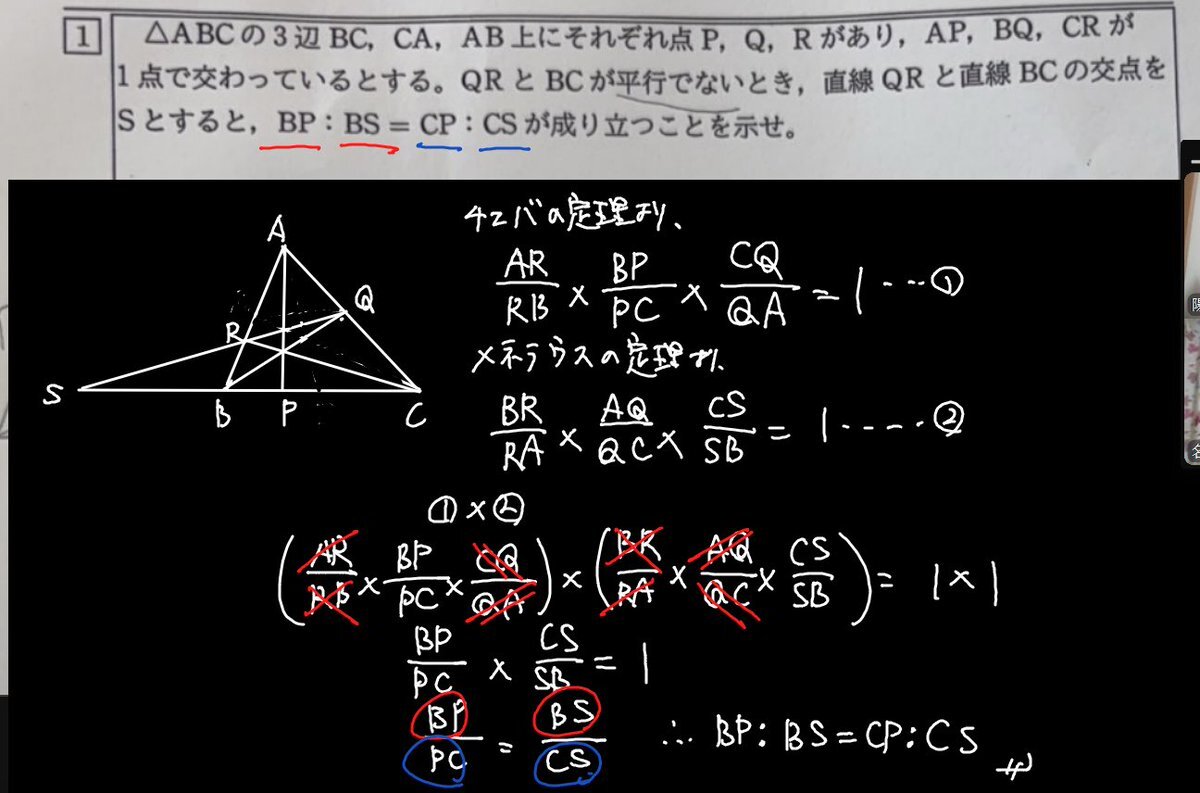 1 △ABCの3辺BC, CA, AB上にそれぞれ点P, Q, Rがあり, AP, BQ, CRが
1点で交わっているとする。QRとBCが平行でないとき, 直線QRと直線BCの交点を
Sとすると, BP:BS=CP:CSが成り立つことを示せ。
A
Q
R
S B P C
チェバの定理より、
AR/RB × BP/PC × CQ/QA = 1 ... ①
メネラウスの定理より、
BR/RA × AQ/QC × CS/SB = 1 ..... ②
① × ②
(AR/RB × BP/PC × CQ/QA) × (BR/RA × AQ/QC × CS/SB) = 1 × 1
BP/PC × CS/SB = 1
BP/PC = BS/CS ∴ BP:BS=CP:CS